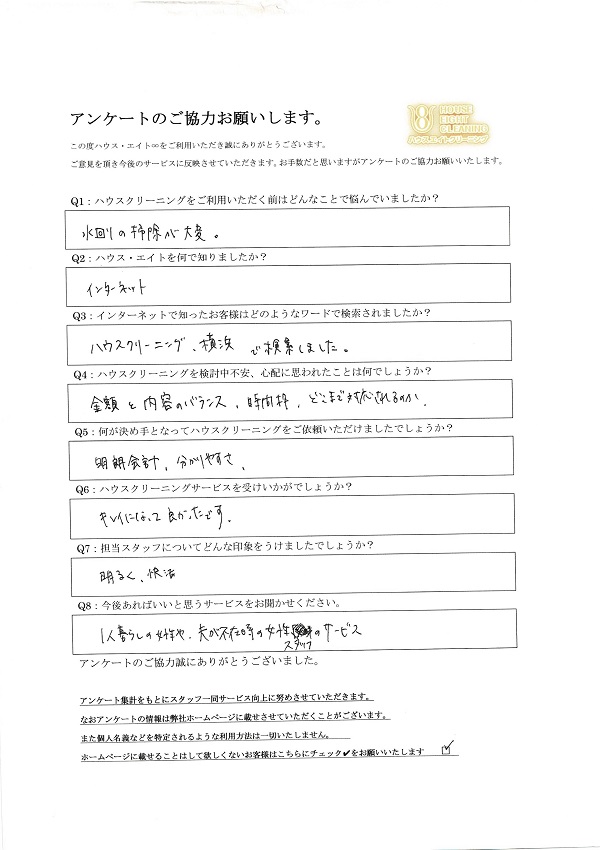 アンケートのご協力お願いします。
HOUSE
EIGHT
CLEANING
ハウス.エイトクリーニング
この度ハウス・エイト∞をご利用いただき誠にありがとうございます。
ご意見を頂き今後のサービスに反映させていただきます。お手数だと思いますがアンケートのご協力お願いいたします。
Q1：ハウスクリーニングをご利用いただく前はどんなことで悩んでいましたか？
水回りの掃除が大変。
Q2：ハウス・エイトを何で知りましたか？
インターネット
Q3：インターネットで知ったお客様はどのようなワードで検索されましたか？
ハウスクリーニング、横浜 で検索しました。
Q4：ハウスクリーニングを検討中不安、心配に思われたことは何でしょうか？
金額と内容のバランス、時間枠、どこまで対応されるのか、
Q5：何が決め手となってハウスクリーニングをご依頼いただけましたでしょうか？
明朗会計、分かりやすさ、
Q6：ハウスクリーニングサービスを受けいかがでしょうか？
キレイになって良かったです。
Q7：担当スタッフについてどんな印象をうけましたでしょうか？
明るく、快活
Q8：今後あればいいと思うサービスをお聞かせください。
1人暮らしの女性や、夫が不在時の女性スタッフのサービス
アンケートのご協力誠にありがとうございました。
アンケート集計をもとにスタッフ一同サービス向上に努めさせていただきます。
なおアンケートの情報は弊社ホームページに載せさせていただくことがございます。
また個人名義などを特定されるような利用方法は一切いたしません。
ホームページに載せることはして欲しくないお客様はこちらにチェック✔をお願いいたします ☑